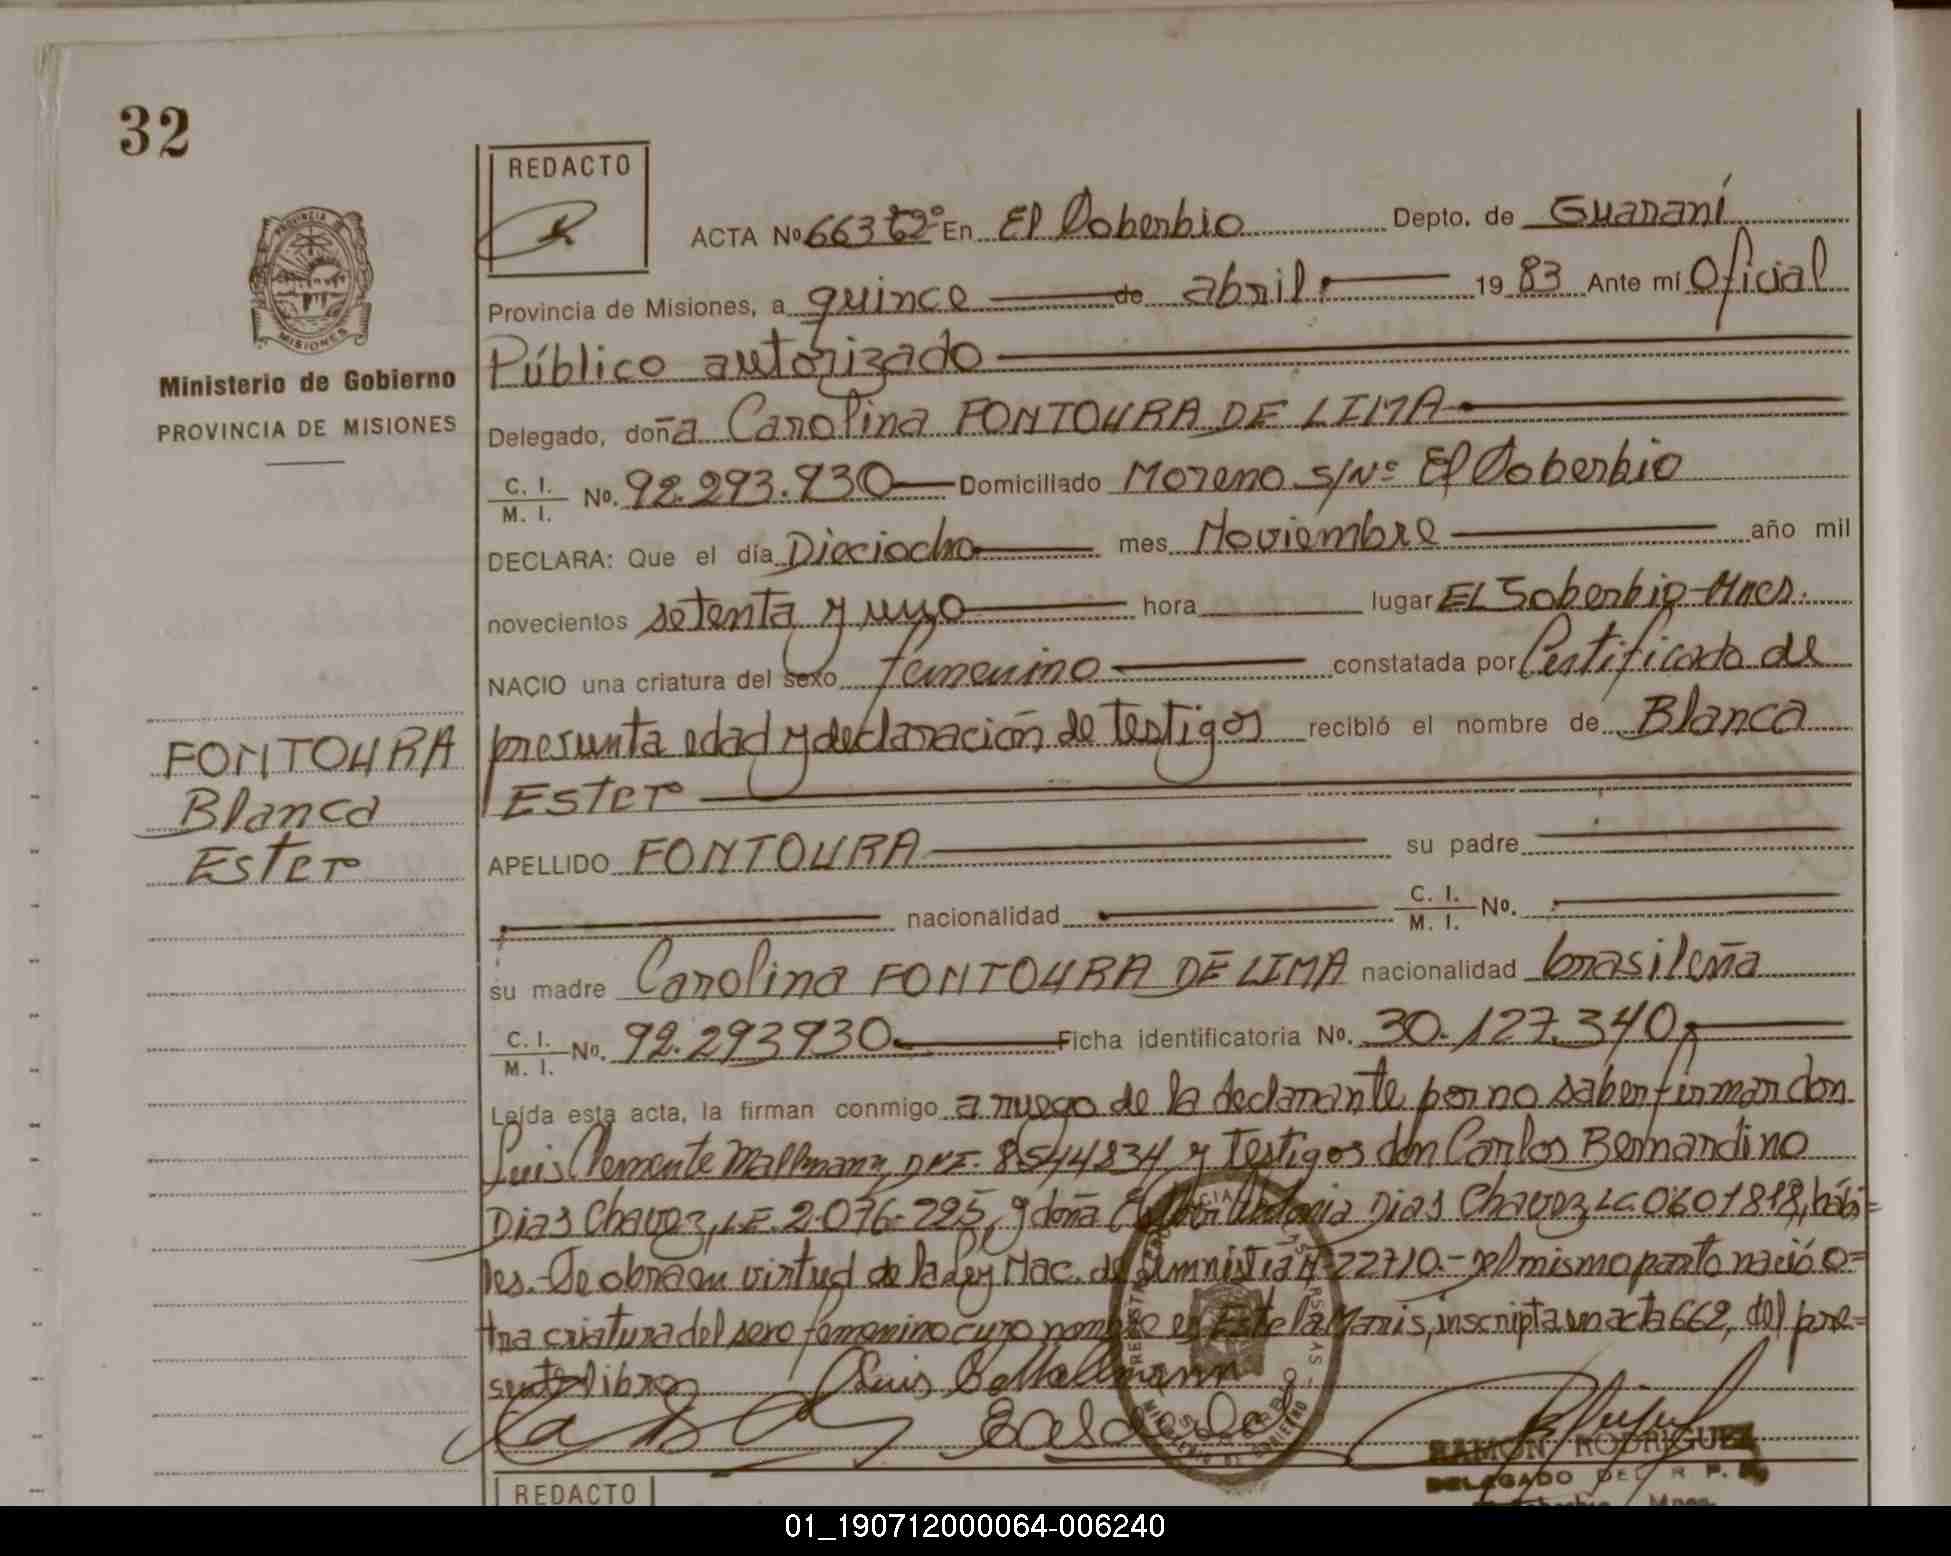 32
REDACTO
ACTA Nº 663 tº 2º En El Soberbio Depto. de Guaraní
PROVINCIA
MISIONES
Provincia de Misiones, a quince de abril 19 83 Ante mí Oficial
Público autorizado
Ministerio de Gobierno
PROVINCIA DE MISIONES
Delegado, doña Carolina FONTOURA DE LIMA
C. I. / M. I. No. 92.293.930 Domiciliado Moreno S/Nº El Soberbio
DECLARA: Que el día Dieciocho mes Noviembre año mil
novecientos setenta y uno hora lugar EL Soberbio-Mnes.
NACIO una criatura del sexo femenino constatada por Certificado de
presunta edad y declaración de testigos recibió el nombre de Blanca
Ester
FONTOURA
Blanca
Ester
APELLIDO FONTOURA su padre
nacionalidad C. I. / M. I. No.
su madre Carolina FONTOURA DE LIMA nacionalidad brasileña
C. I. / M. I. No. 92.293930 Ficha identificatoria No. 30.127.340
Leída esta acta, la firman conmigo a ruego de la declarante por no saber firmar don
Luis Clemente Mallmann, DNI. 8544834, y testigos don Carlos Bernardino
Dias Chavez, L.E. 2.076.225, y doña Antonia Dias Chavez, LC. 0601818, hábi=
les.-Se obra en virtud de la Ley Nac. de Amnistia Nº 22710.- del mismo parto nació o=
tra criatura del sexo femenino cuyo nombre es Estela Maris, inscripta en acta 662, del pre=
sente libro
Luis C. Mallmann
RAMON RODRIGUEZ
DELEGADO DEL R. P.
El Soberbio Mnes.
REDACTO
01_190712000064-006240